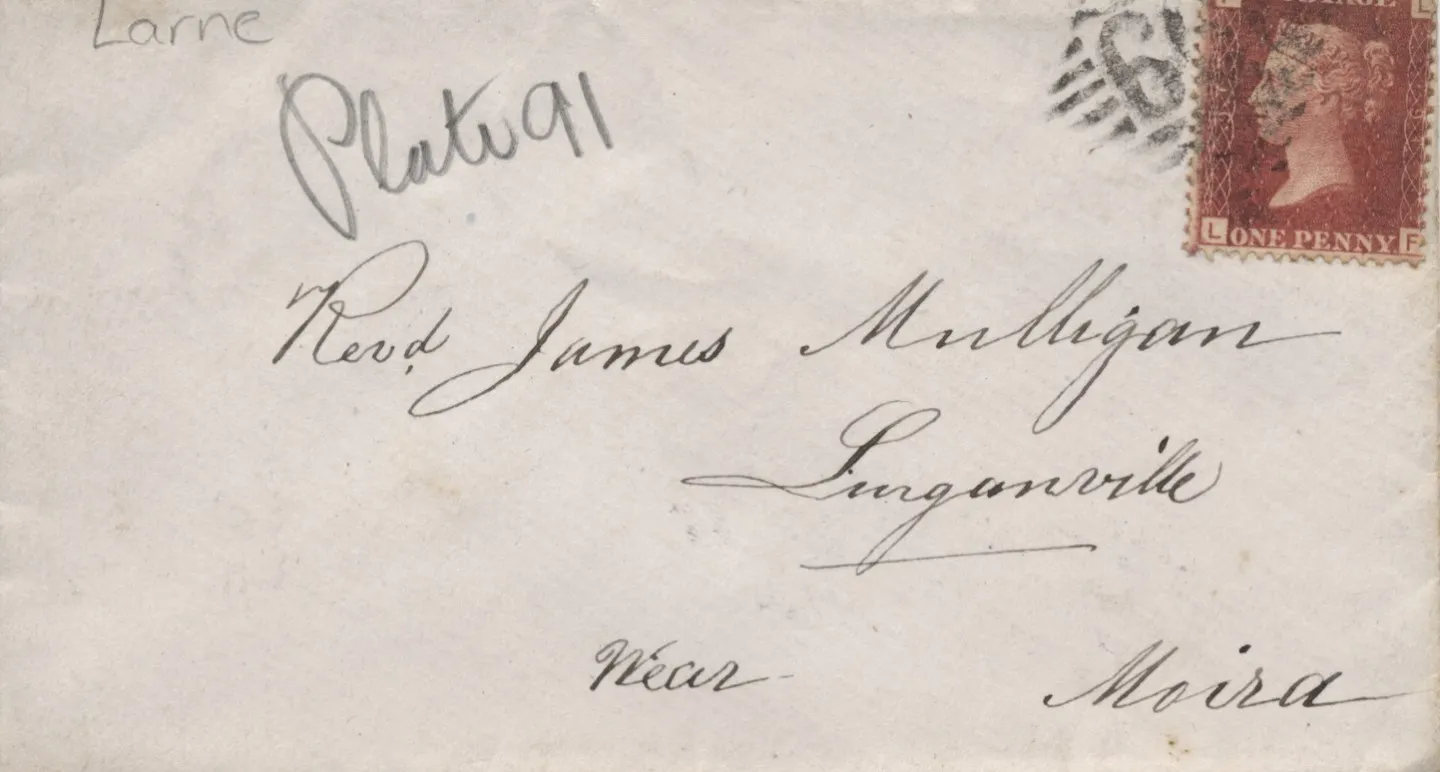 Larne
Plate 91
Revd. James Mulligan
Lurganville
Near Moira
L ONE PENNY F